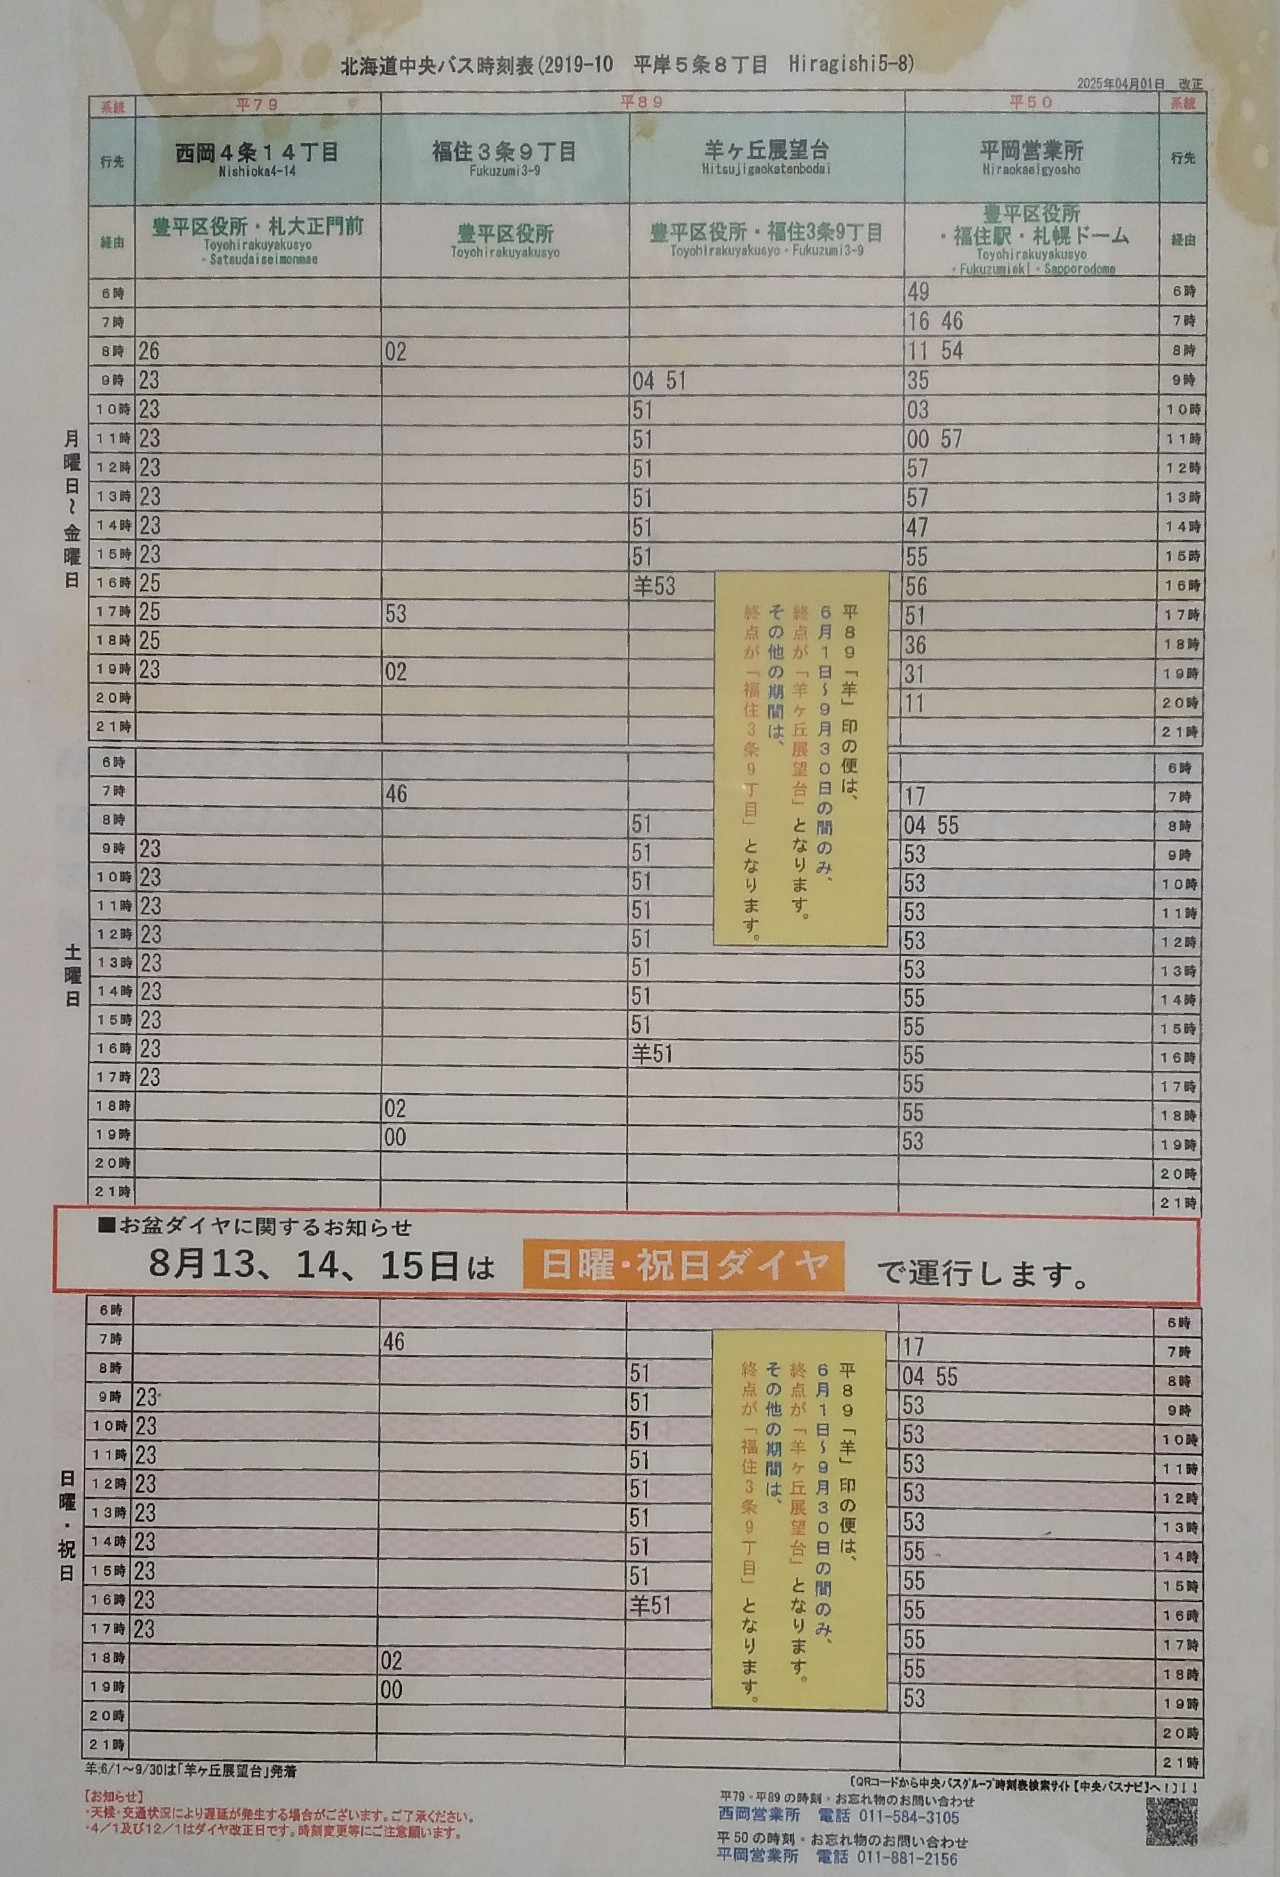 北海道中央バス時刻表(2919-10 平岸5条8丁目 Hiragishi5-8)
2025年04月01日 改正
系統 平79 平89 平50 系統
行先 西岡4条14丁目 福住3条9丁目 羊ヶ丘展望台 平岡営業所 行先
Nishioka4-14 Fukuzumi3-9 Hitsujigaokatenbodai Hiraokaeigyosho
経由 豊平区役所・札大正門前 豊平区役所 豊平区役所・福住3条9丁目 豊平区役所・福住駅・札幌ドーム 経由
Toyohirakuyakusyo・Satsudaiseimonmae Toyohirakuyakusyo Toyohirakuyakusyo・Fukuzumi3-9 Toyohirakuyakusyo・Fukuzumieki・Sapporodome
月曜日～金曜日
6時 49 6時
7時 16 46 7時
8時 26 02 11 54 8時
9時 23 04 51 35 9時
10時 23 51 03 10時
11時 23 51 00 57 11時
12時 23 51 57 12時
13時 23 51 57 13時
14時 23 51 47 14時
15時 23 51 55 15時
16時 25 羊53 56 16時
17時 25 53 51 17時
18時 25 36 18時
19時 23 02 31 19時
20時 11 20時
21時 21時
平89「羊」印の便は、
6月1日～9月30日の間のみ、
終点が「羊ヶ丘展望台」となります。
その他の期間は、
終点が「福住3条9丁目」となります。
土曜日
6時 6時
7時 46 17 7時
8時 51 04 55 8時
9時 23 51 53 9時
10時 23 51 53 10時
11時 23 51 53 11時
12時 23 51 53 12時
13時 23 51 53 13時
14時 23 51 55 14時
15時 23 51 55 15時
16時 23 羊51 55 16時
17時 23 55 17時
18時 02 55 18時
19時 00 53 19時
20時 20時
21時 21時
■お盆ダイヤに関するお知らせ
8月13、14、15日は 日曜・祝日ダイヤ で運行します。
日曜・祝日
6時 6時
7時 46 17 7時
8時 51 04 55 8時
9時 23 51 53 9時
10時 23 51 53 10時
11時 23 51 53 11時
12時 23 51 53 12時
13時 23 51 53 13時
14時 23 51 55 14時
15時 23 51 55 15時
16時 23 羊51 55 16時
17時 23 55 17時
18時 02 55 18時
19時 00 53 19時
20時 20時
21時 21時
平89「羊」印の便は、
6月1日～9月30日の間のみ、
終点が「羊ヶ丘展望台」となります。
その他の期間は、
終点が「福住3条9丁目」となります。
羊:6/1～9/30は「羊ヶ丘展望台」発着
【お知らせ】
・天候・交通状況により遅延が発生する場合がございます。ご了承ください。
・4/1及び12/1はダイヤ改正日です。時刻変更等にご注意願います。
〔QRコードから中央バスグループ時刻表検索サイト【中央バスナビ】へ！〕↓↓
平79・平89の時刻・お忘れ物のお問い合わせ
西岡営業所 電話 011-584-3105
平50の時刻・お忘れ物のお問い合わせ
平岡営業所 電話 011-881-2156